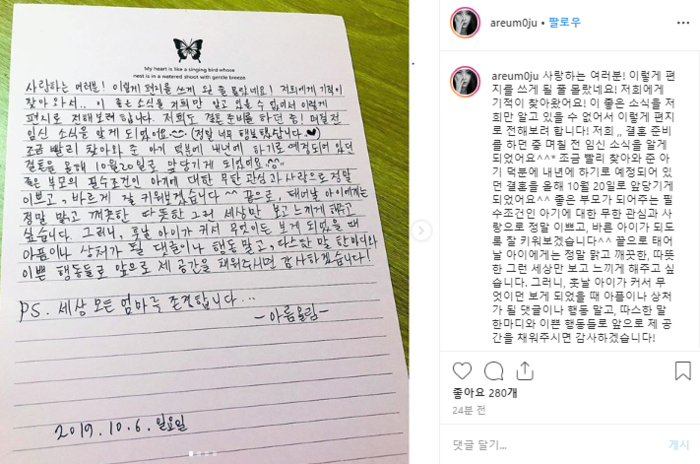 My heart is like a singing bird whose
nest is in a watered shoot with gentle breeze
사랑하는 여러분! 이렇게 편지를 쓰게 될 줄 몰랐네요! 저희에게 기적이
찾아와서.. 이 좋은 소식을 저희만 알고 있을 수 없어서 이렇게
편지로 전해보려 합니다. 저희도 결혼 준비를 하던 중! 며칠 전
임신 소식을 알게 되었어요^^ (정말 너무 행복했답니다.♥
조금 빨리 찾아와 준 아기 덕분에 내년에 하기로 예정되어 있던
결혼을 올해 10월 20일로 앞당기게 되었어요^^
좋은 부모의 필수조건인 아기에 대한 무한 관심과 사랑으로 정말
이쁘고, 바르게 잘 키워보겠습니다^^ 끝으로, 태어날 아이에게는
정말 맑고 깨끗한 따듯한 그런 세상만 보고 느끼게 해주고
싶습니다. 그러니, 훗날 아이가 커서 무엇이든 보게 되었을 때
아픔이나 상처가 될 댓글이나 행동 말고, 다스한 말 한마디와
이쁜 행동들로 앞으로 제 공간을 채워주시면 감사하겠습니다!
PS. 세상 모든 엄마를 존경합니다...
-아름올림-
2019. 10. 6. 일요일
areum0ju • 팔로우
areum0ju 사랑하는 여러분! 이렇게 편
지를 쓰게 될 줄 몰랐네요! 저희에게
기적이 찾아왔어요! 이 좋은 소식을 저
희만 알고 있을 수 없어서 이렇게 편지
로 전해보려 합니다! 저희 ,, 결혼 준비
를 하던 중 며칠 전 임신 소식을 알게
되었어요^^* 조금 빨리 찾아와 준 아
기 덕분에 내년에 하기로 예정되어 있
던 결혼을 올해 10월 20일로 앞당기게
되었어요~^^ 좋은 부모가 되어주는 필
수조건인 아기에 대한 무한 관심과 사
랑으로 정말 이쁘고, 바른 아이가 되도
록 잘 키워보겠습니다^^ 끝으로 태어
날 아이에게는 정말 맑고 깨끗한, 따뜻
한 그런 세상만 보고 느끼게 해주고 싶
습니다. 그러니, 훗날 아이가 커서 무
엇이면 보게 되었을 때 아픔이나 상처
가 될 댓글이나 행동 말고, 따스한 말
한마디와 이쁜 행동들로 앞으로 제 공
간을 채워주시면 감사하겠습니다!
좋아요 280개
24분 전
댓글 달기...
게시